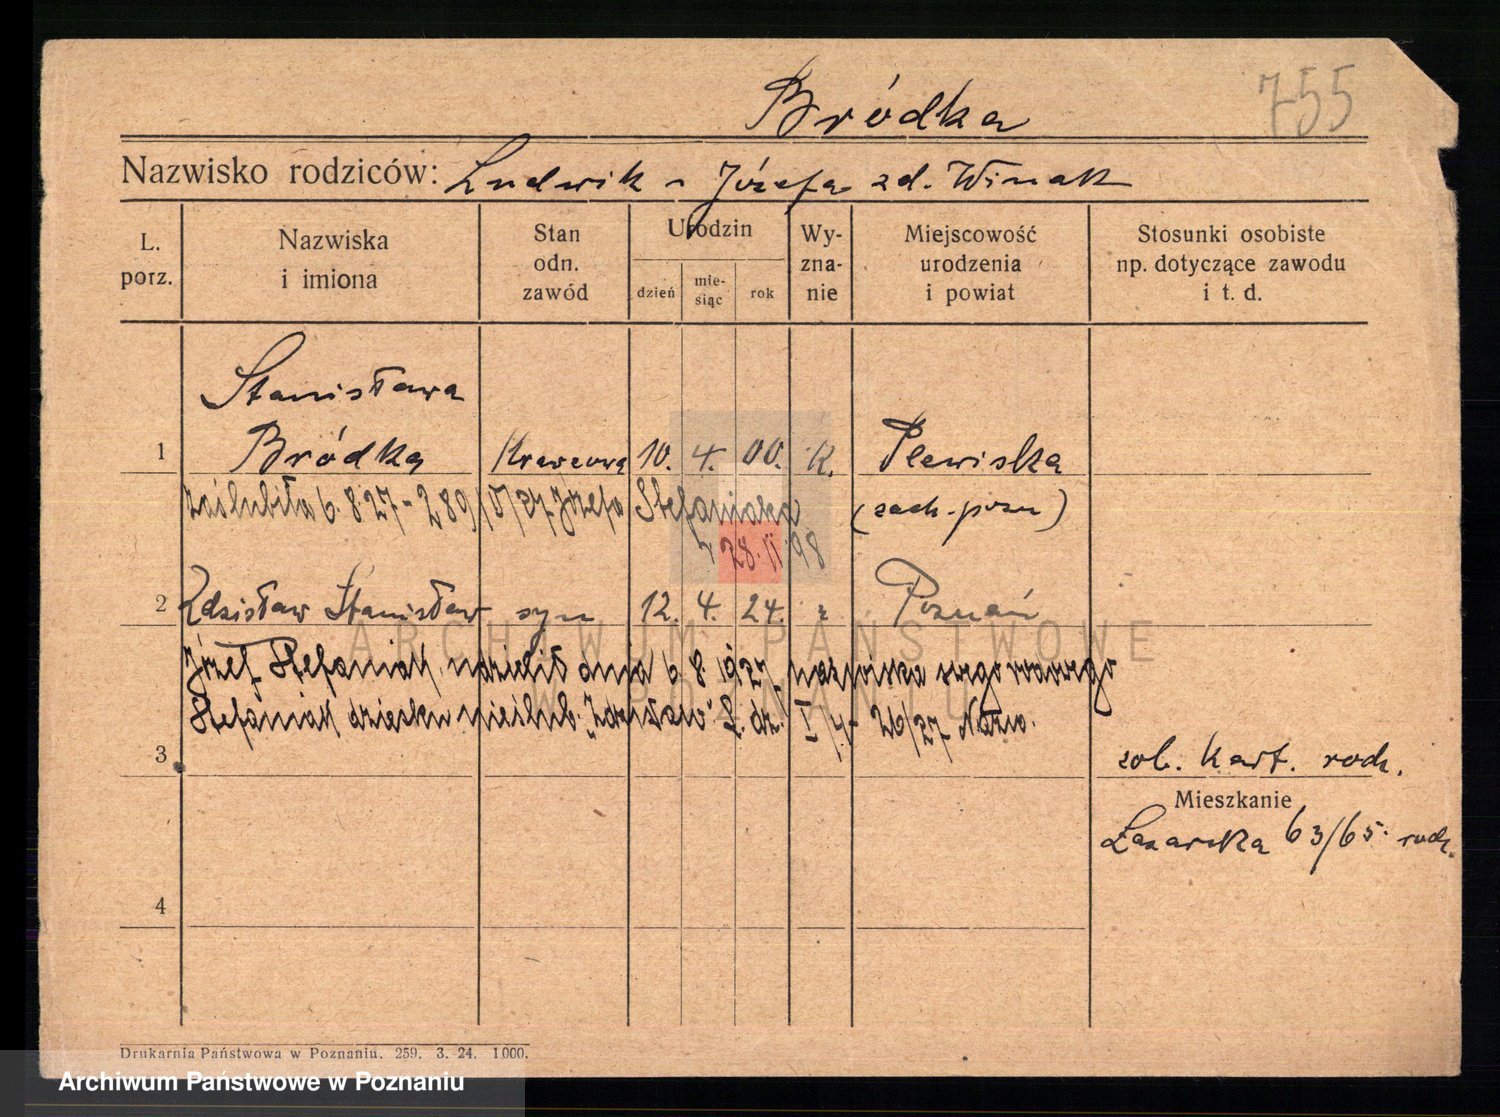 Bródka
755
Nazwisko rodziców: Ludwik - Józefa zd. Winak
L. porz.
Nazwiska i imiona
Stan odn. zawód
Urodzin
dzień
mie-siąc
rok
Wy-zna-nie
Miejscowość urodzenia i powiat
Stosunki osobiste np. dotyczące zawodu i t. d.
Stanisława
1 Bródka Krawcowa 10. 4. 00. K. Plewiska
zaślubiła 6.8.27 - 289/ Józefa Stefaniaka (zach. pozn)
28.11.98
2 Zdzisław Stanisław syn 12. 4. 24. Poznań
ARCHIWUM PAŃSTWOWE
W POZNANIU
Józef Stefaniak, udzielił dnia 6.8.1927 nazwiska swego rodowego
Stefaniak dziecku nieślub. "Zdzisław" L. dz. I/4 - 26/27 Nazw.
3
zob. kart. rodz.
Mieszkanie
Łazarska 63/65 rodz.
4
Drukarnia Państwowa w Poznaniu. 259. 3. 24. 1000.
Archiwum Państwowe w Poznaniu